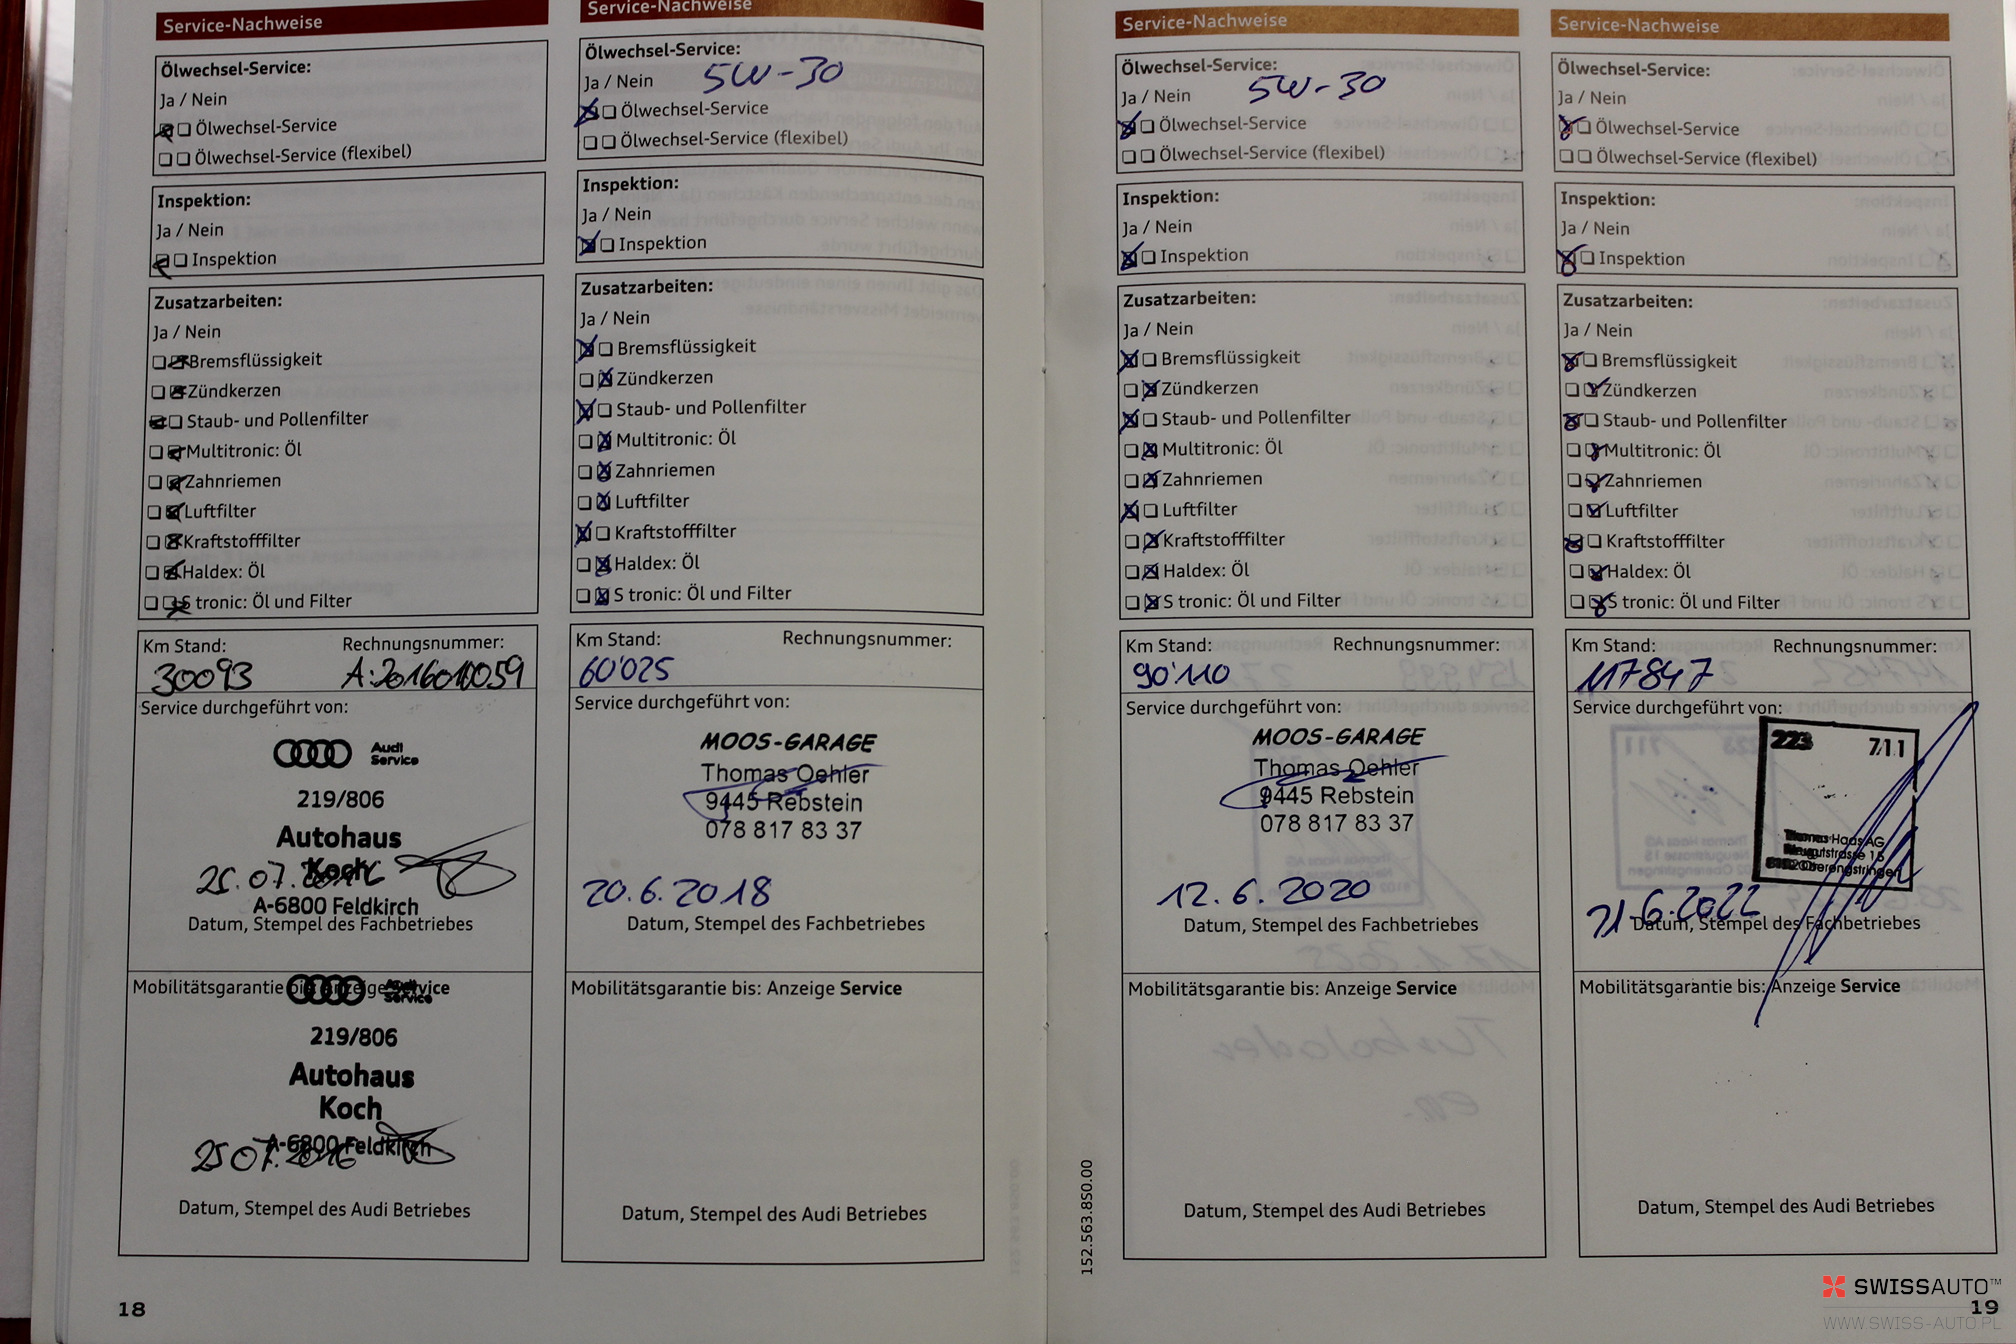 Service-Nachweise
Ölwechsel-Service:
Ja / Nein
Ölwechsel-Service
Ölwechsel-Service (flexibel)
Inspektion:
Ja / Nein
Inspektion
Zusatzarbeiten:
Ja / Nein
Bremsflüssigkeit
Zündkerzen
Staub- und Pollenfilter
Multitronic: Öl
Zahnriemen
Luftfilter
Kraftstofffilter
Haldex: Öl
S tronic: Öl und Filter
Km Stand: Rechnungsnummer:
30093 A:2016010059
Service durchgeführt von:
Audi
Service
219/806
Autohaus
Koch
25.07.2016
A-6800 Feldkirch
Datum, Stempel des Fachbetriebes
Mobilitätsgarantie bis: Anzeige Service
Audi
Service
219/806
Autohaus
Koch
A-6800 Feldkirch
25 07. 2016
Datum, Stempel des Audi Betriebes
18
Service-Nachweise
Ölwechsel-Service:
Ja / Nein 5W-30
Ölwechsel-Service
Ölwechsel-Service (flexibel)
Inspektion:
Ja / Nein
Inspektion
Zusatzarbeiten:
Ja / Nein
Bremsflüssigkeit
Zündkerzen
Staub- und Pollenfilter
Multitronic: Öl
Zahnriemen
Luftfilter
Kraftstofffilter
Haldex: Öl
S tronic: Öl und Filter
Km Stand: Rechnungsnummer:
60'025
Service durchgeführt von:
MOOS-GARAGE
Thomas Oehler
9445 Rebstein
078 817 83 37
20.6.2018
Datum, Stempel des Fachbetriebes
Mobilitätsgarantie bis: Anzeige Service
Datum, Stempel des Audi Betriebes
Service-Nachweise
Ölwechsel-Service:
Ja / Nein 5W-30
Ölwechsel-Service
Ölwechsel-Service (flexibel)
Inspektion:
Ja / Nein
Inspektion
Zusatzarbeiten:
Ja / Nein
Bremsflüssigkeit
Zündkerzen
Staub- und Pollenfilter
Multitronic: Öl
Zahnriemen
Luftfilter
Kraftstofffilter
Haldex: Öl
S tronic: Öl und Filter
Km Stand: Rechnungsnummer:
90'110
Service durchgeführt von:
MOOS-GARAGE
Thomas Oehler
9445 Rebstein
078 817 83 37
12.6.2020
Datum, Stempel des Fachbetriebes
Mobilitätsgarantie bis: Anzeige Service
Datum, Stempel des Audi Betriebes
152.563.850.00
Service-Nachweise
Ölwechsel-Service:
Ja / Nein
Ölwechsel-Service
Ölwechsel-Service (flexibel)
Inspektion:
Ja / Nein
Inspektion
Zusatzarbeiten:
Ja / Nein
Bremsflüssigkeit
Zündkerzen
Staub- und Pollenfilter
Multitronic: Öl
Zahnriemen
Luftfilter
Kraftstofffilter
Haldex: Öl
S tronic: Öl und Filter
Km Stand: Rechnungsnummer:
117847
Service durchgeführt von:
223 711
Thomas Haas AG
Neugutstrasse 15
8102 Oberengstringen
21.6.2022
Datum, Stempel des Fachbetriebes
Mobilitätsgarantie bis: Anzeige Service
Datum, Stempel des Audi Betriebes
SWISSAUTO™
19
WWW.SWISS-AUTO.PL